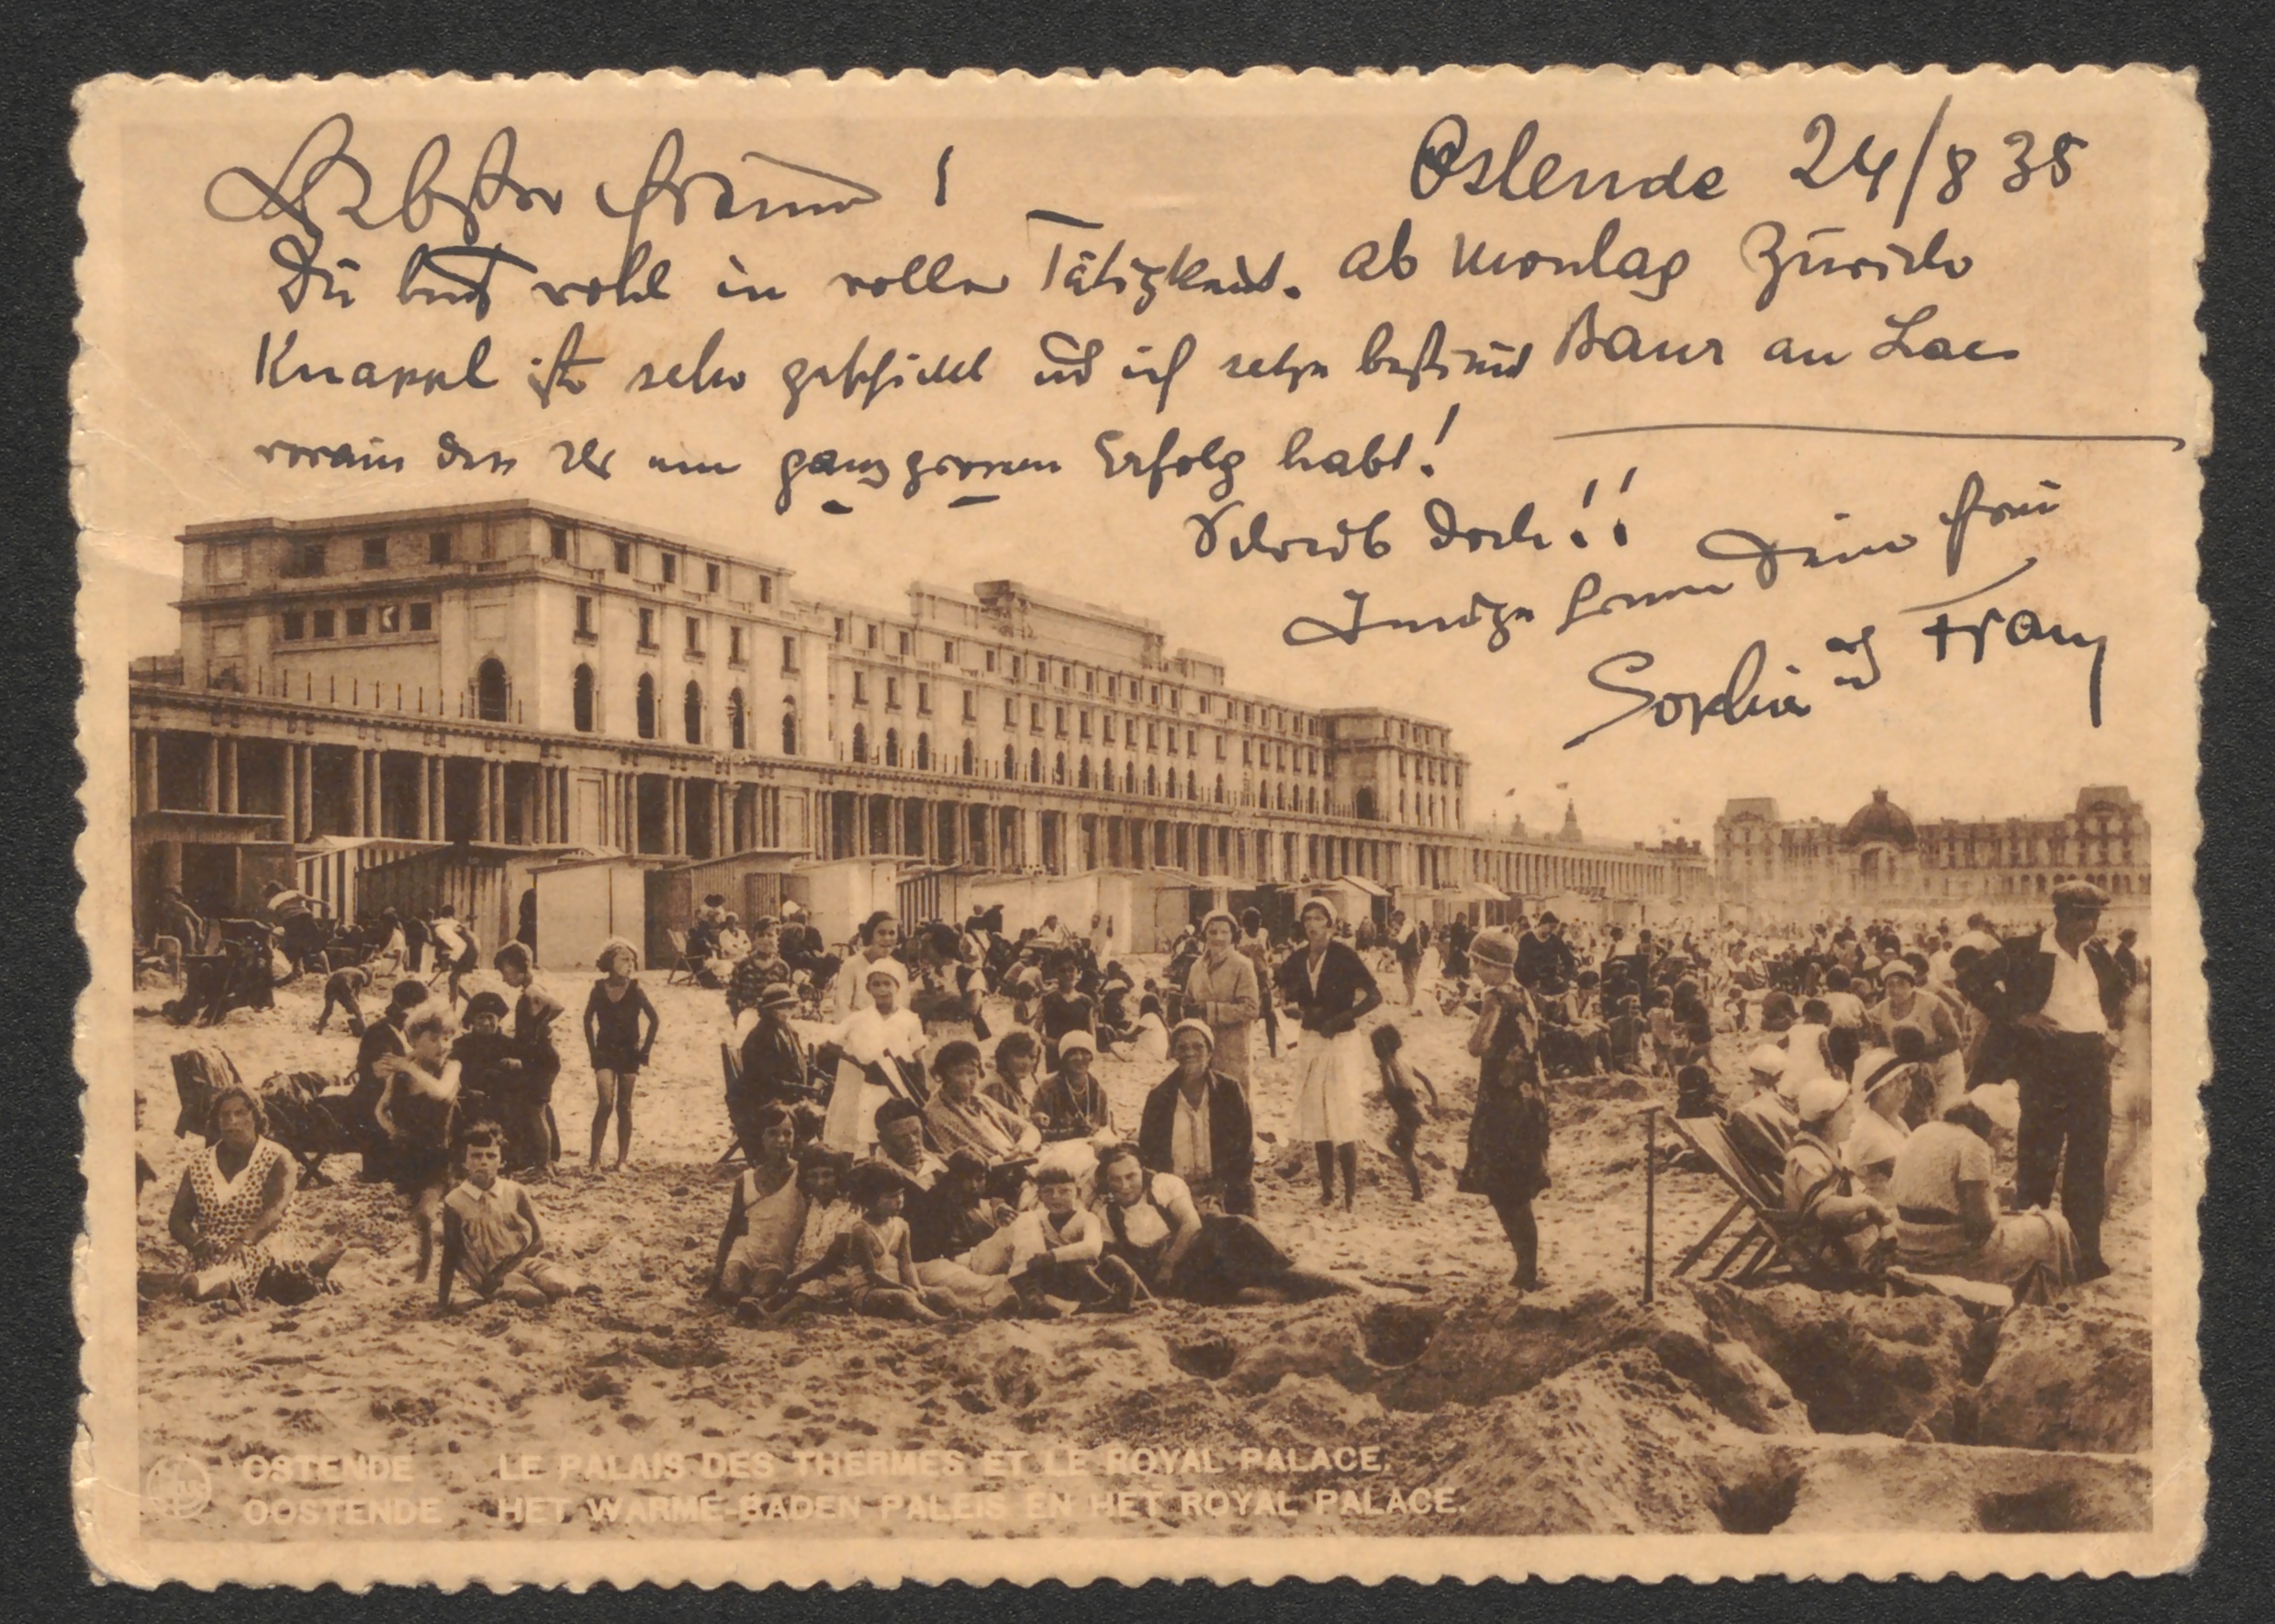 Liebster Freund!
Ostende 24/8 35
Du bist wohl in voller Tätigkeit.
ab Montag Zürich
Knappl ist sehr geschickt und ich sehe bestimmt
Baur au Lac
voraus dass Ihr einen ganz grossen Erfolg habt!
Schreib doch!!
Innigst Deine Frau
Sophie und Franz
OSTENDE LE PALAIS DES THERMES ET LE ROYAL PALACE.
OOSTENDE HET WARME-BADEN PALEIS EN HET ROYAL PALACE.